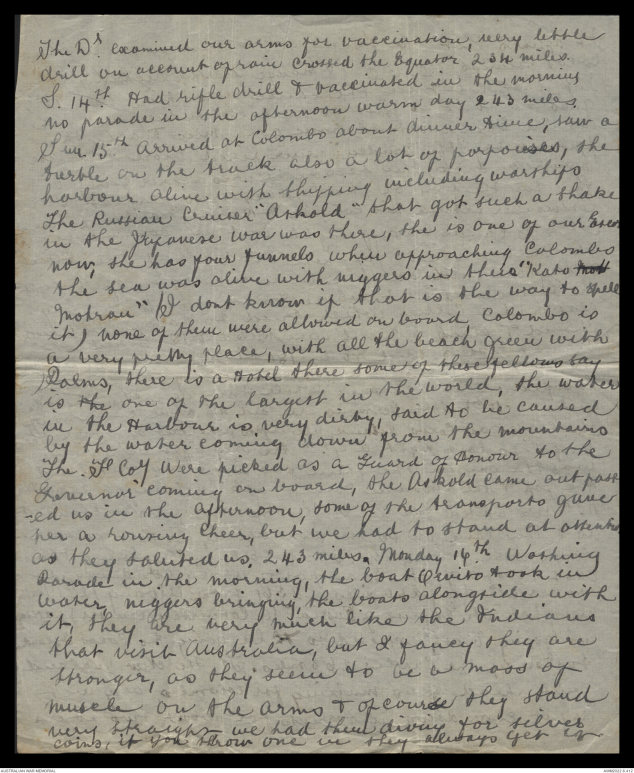 The Drs examined our arms for vaccination, very little
drill on account of rain Crossed the Equator 234 miles.
S. 14th. Had rifle drill & vaccinated in the morning
no parade in the afternoon warm day 243 miles.
Sun 15th Arrived at Colombo about dinner time, saw a
turtle on the track also a lot of porpoises, the
harbour alive with shipping including warships
The Russian Cruiser "Askold" that got such a shake
in the Japanese war was there, she is one of our Escort
now, she has four funnels when approaching Colombo
the sea was alive with niggers in their "Kato
Mohrau" (I dont know if that is the way to spell
it) none of them were allowed on board, Colombo is
a very pretty place, with all the beach green with
Palms, there is a Hotel there some of these fellows say
is the one of the largest in the world, the water
in the Harbour is very dirty, said to be caused
by the water coming down from the mountains
The "F" Coy were picked as a Guard of Honour to the
Governor coming on board, the Askold came out pass
-ed us in the afternoon, some of the transports gave
her a rousing cheer, but we had to stand at attention
as they saluted us. 243 miles. Monday 16th Washing
Parade in the morning, the boat Orvito took in
water, niggers bringing the boats alongside with
it, they are very much like the Indians
that visit Australia, but I fancy they are
stronger, as they seem to be a mass of
muscle on the arms & of course they stand
very straight we had them diving for silver
coins, if you throw one in they always get it
AUSTRALIAN WAR MEMORIAL